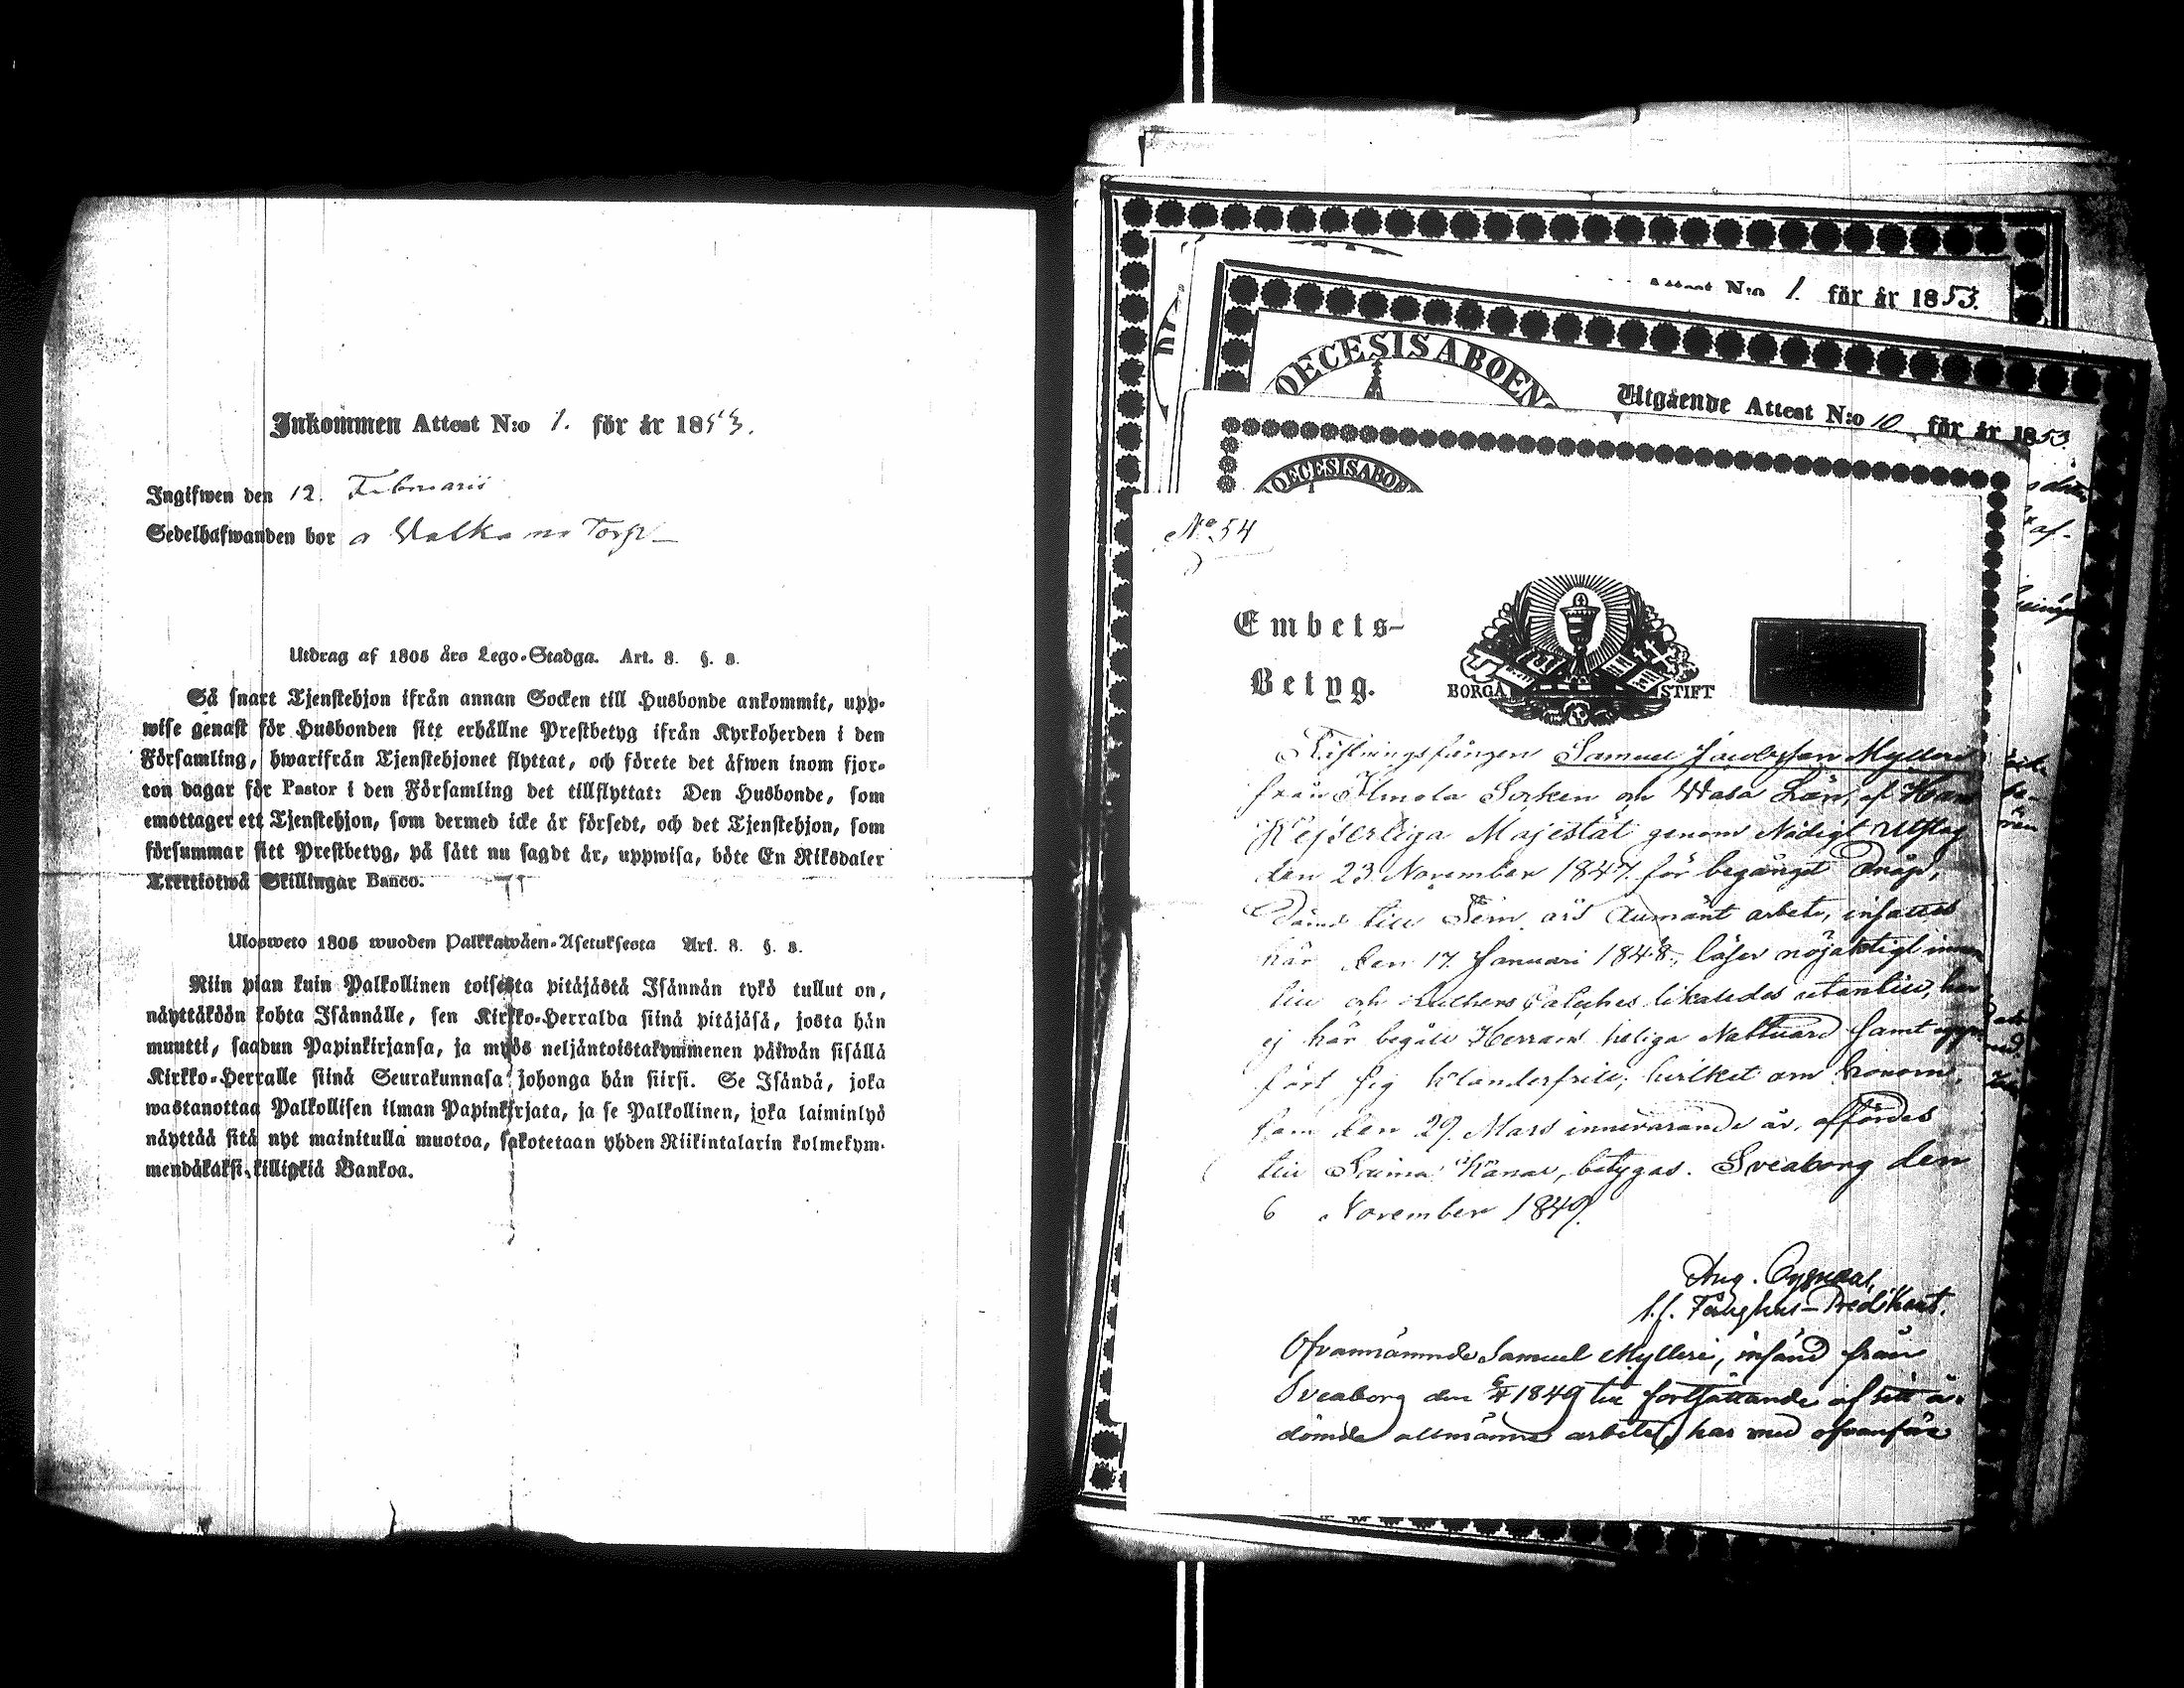 Inkommen Attest N:o 1. för år 1853.
Ingifwen den 12. Februarii
Sedelhafwanden bor a Torp
Utdrag af 1805 års Lego-Stadga. Art. 8. §. 8.
Så snart Tjenstehjon ifrån annan Socken till Husbonde ankommit, upp-
wise genast för Husbonden sitt erhållne Prestbetyg ifrån Kyrkoherden i den
Församling, hwarifrån Tjenstehjonet flyttat, och förete det äfwen inom fjor-
ton dagar för Pastor i den Församling det tillflyttat: Den Husbonde, som
emottager ett Tjenstehjon, som dermed icke är försedt, och det Tjenstehjon, som
försummar sitt Prestbetyg, på sätt nu sagdt är, uppwisa, böte En Riksdaler
Trettiotwå Skillingar Banco.
Ulosweto 1805 wuoden Palkkawäen-Asetuksesta Art. 8. §. 8.
Niin pian kuin Palkollinen toisesta pitäjästä Isännän tykö tullut on,
näyttäköön kohta Isännälle, sen Kirkko-Herralda siinä pitäjäsä, josta hän
muutti, saadun Papinkirjansa, ja myös neljäntoistakymmenen päiwän sisällä
Kirkko-Herralle siinä Seurakunnasa johonga hän siirsi. Se Isändä, joka
wastanottaa Palkollisen ilman Papinkirjata, ja se Palkollinen, joka laiminlyö
näyttää sitä nyt mainitulla muotoa, sakotetaan yhden Riikintalarin kolmekym-
mendäkaksi killingiä Bankoa.
Attest N:o 1. för år 1853.
OECESIS ABOENS
Utgående Attest N:o 10 för år 1853.
OECESIS ABOE
No 54
Embets-
Betyg.
BORGÅ STIFT
Fästningsfången Samuel Jacobsson Mylleri
från Ilmola Socken och Wasa Län, af Hans
Kejserliga Majestät genom Nådigt Utslag
den 23 November 1847 för begånget Dråp,
Dömd till Fem års allmänt arbete, insattes
här den 17. Januari 1848, läser nöjaktigt innan
till och Luthers Cateches likaledes utantill, har
ej här begått Herrans heliga Nattvard samt upp-
fört sig klanderfritt; hvilket om honom,
som den 29. Mars innevarande år, affördes
till Saima Kanal, betygas. Sveaborg den
6 November 1849.
Aug.
t.f. Fånghus-Predikant.
Ofvannämnde Samuel Mylleri, insänd från
Sveaborg den 1849 till fortsättande af sitt å-
dömda allmänna arbete, har med ofvanför